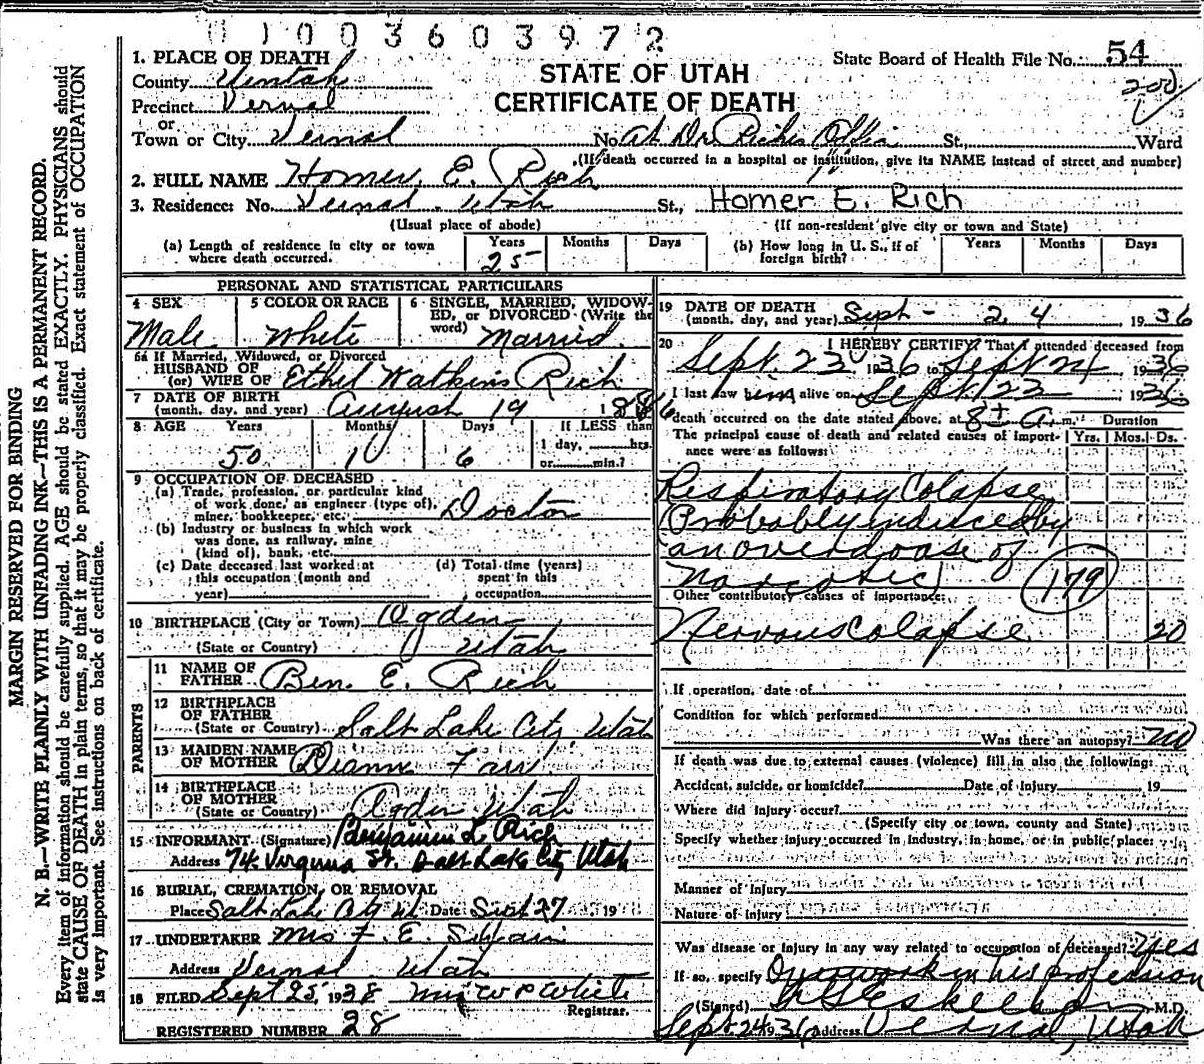 0 1 0 0 3 6 0 3 9 7 2
1. PLACE OF DEATH
County Uintah
Precinct Vernal
or
Town or City Vernal
STATE OF UTAH
CERTIFICATE OF DEATH
State Board of Health File No. 54
200
No. At Dr Riches Office St., Ward
(If death occurred in a hospital or institution, give its NAME instead of street and number)
2. FULL NAME Homer E. Rich
3. Residence: No. Vernal Utah St., Homer E. Rich
(Usual place of abode) (If non-resident give city or town and State)
(a) Length of residence in city or town where death occurred. Years 25 Months Days
(b) How long in U. S., if of foreign birth? Years Months Days
PERSONAL AND STATISTICAL PARTICULARS
4 SEX Male
5 COLOR OR RACE White
6 SINGLE, MARRIED, WIDOWED, or DIVORCED (Write the word) Married
6a If Married, Widowed, or Divorced
HUSBAND OF
(or) WIFE OF Ethel Watkins Rich
7 DATE OF BIRTH
(month, day, and year) August 19 1886
8 AGE Years 50 Months 1 Days 6 If LESS than 1 day, hrs. or min.?
9 OCCUPATION OF DECEASED
(a) Trade, profession, or particular kind of work done, as engineer (type of), miner, bookkeeper, etc. Doctor
(b) Industry or business in which work was done, as railway, mine (kind of), bank, etc.
(c) Date deceased last worked at this occupation (month and year)
(d) Total time (years) spent in this occupation
10 BIRTHPLACE (City or Town) Ogden
(State or Country) Utah
PARENTS
11 NAME OF FATHER Ben. E. Rich
12 BIRTHPLACE OF FATHER
(State or Country) Salt Lake City Utah
13 MAIDEN NAME OF MOTHER Diann Farr
14 BIRTHPLACE OF MOTHER
(State or Country) Ogden Utah
15 INFORMANT (Signature) Benjamin L. Rich
Address 74 Virginia St. Salt Lake City, Utah
16 BURIAL, CREMATION, OR REMOVAL
Place Salt Lake City Ut Date Sept 27 19
17 UNDERTAKER Mrs F. E.
Address Vernal Utah
18 FILED Sept 25, 1938 Mrs W P White
Registrar.
REGISTERED NUMBER 28
19 DATE OF DEATH
(month, day, and year) Sept - 24, 1936
20 I HEREBY CERTIFY That I attended deceased from
Sept. 23, 1936 to Sept 24 1936
I last saw him alive on Sept. 23 1936
death occurred on the date stated above, at 8± A. m.
The principal cause of death and related causes of importance were as follows:
Duration
Yrs. Mos. Ds.
Respiratory Colapse
Probably induced by
an overdoase of
Narcotic
179
Other contributory causes of importance:
Nervous colapse 20
If operation, date of
Condition for which performed
Was there an autopsy? no
If death was due to external causes (violence) fill in also the following:
Accident, suicide, or homicide? Date of injury 19
Where did injury occur?
(Specify city or town, county and State)
Specify whether injury occurred in industry, in home, or in public place:
Manner of Injury
Nature of Injury
Was disease or injury in any way related to occupation of deceased? Yes
If so, specify Overwork in his profession
(Signed) M.D.
Sept. 24 1936 Address Vernal, Utah
MARGIN RESERVED FOR BINDING
N. B.—WRITE PLAINLY WITH UNFADING INK—THIS IS A PERMANENT RECORD.
Every item of information should be carefully supplied. AGE should be stated EXACTLY. PHYSICIANS should
state CAUSE OF DEATH in plain terms, so that it may be properly classified. Exact statement of OCCUPATION
is very important. See instructions on back of certificate.